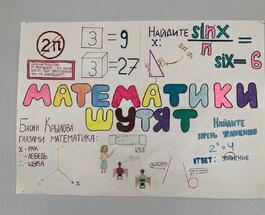 2π
3 = 9
3 = 27
НАЙДИТЕ
X:
sinx
n
=
six = 6
МАТЕМАТИКИ
ШУТЯТ
Басня Крылова
глазами математика:
X - РАК
- ЛЕБЕДЬ
Z - ЩУКА
Найдите
корень уравнения
2² = 4
ОТВЕТ: